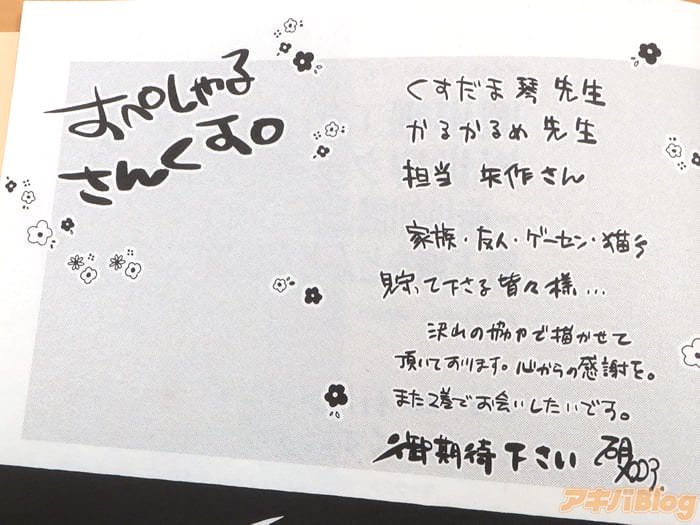 すぺしゃる
さんくす。
くすだま琴 先生
かるかるめ 先生
担当 矢作さん
家族・友人・ゲーセン・猫
貯って下さる皆々様...
沢山の協力で描かせて
頂いております。心からの感謝を。
また2巻でお会いしたいです。
御期待下さい
アキバBlog